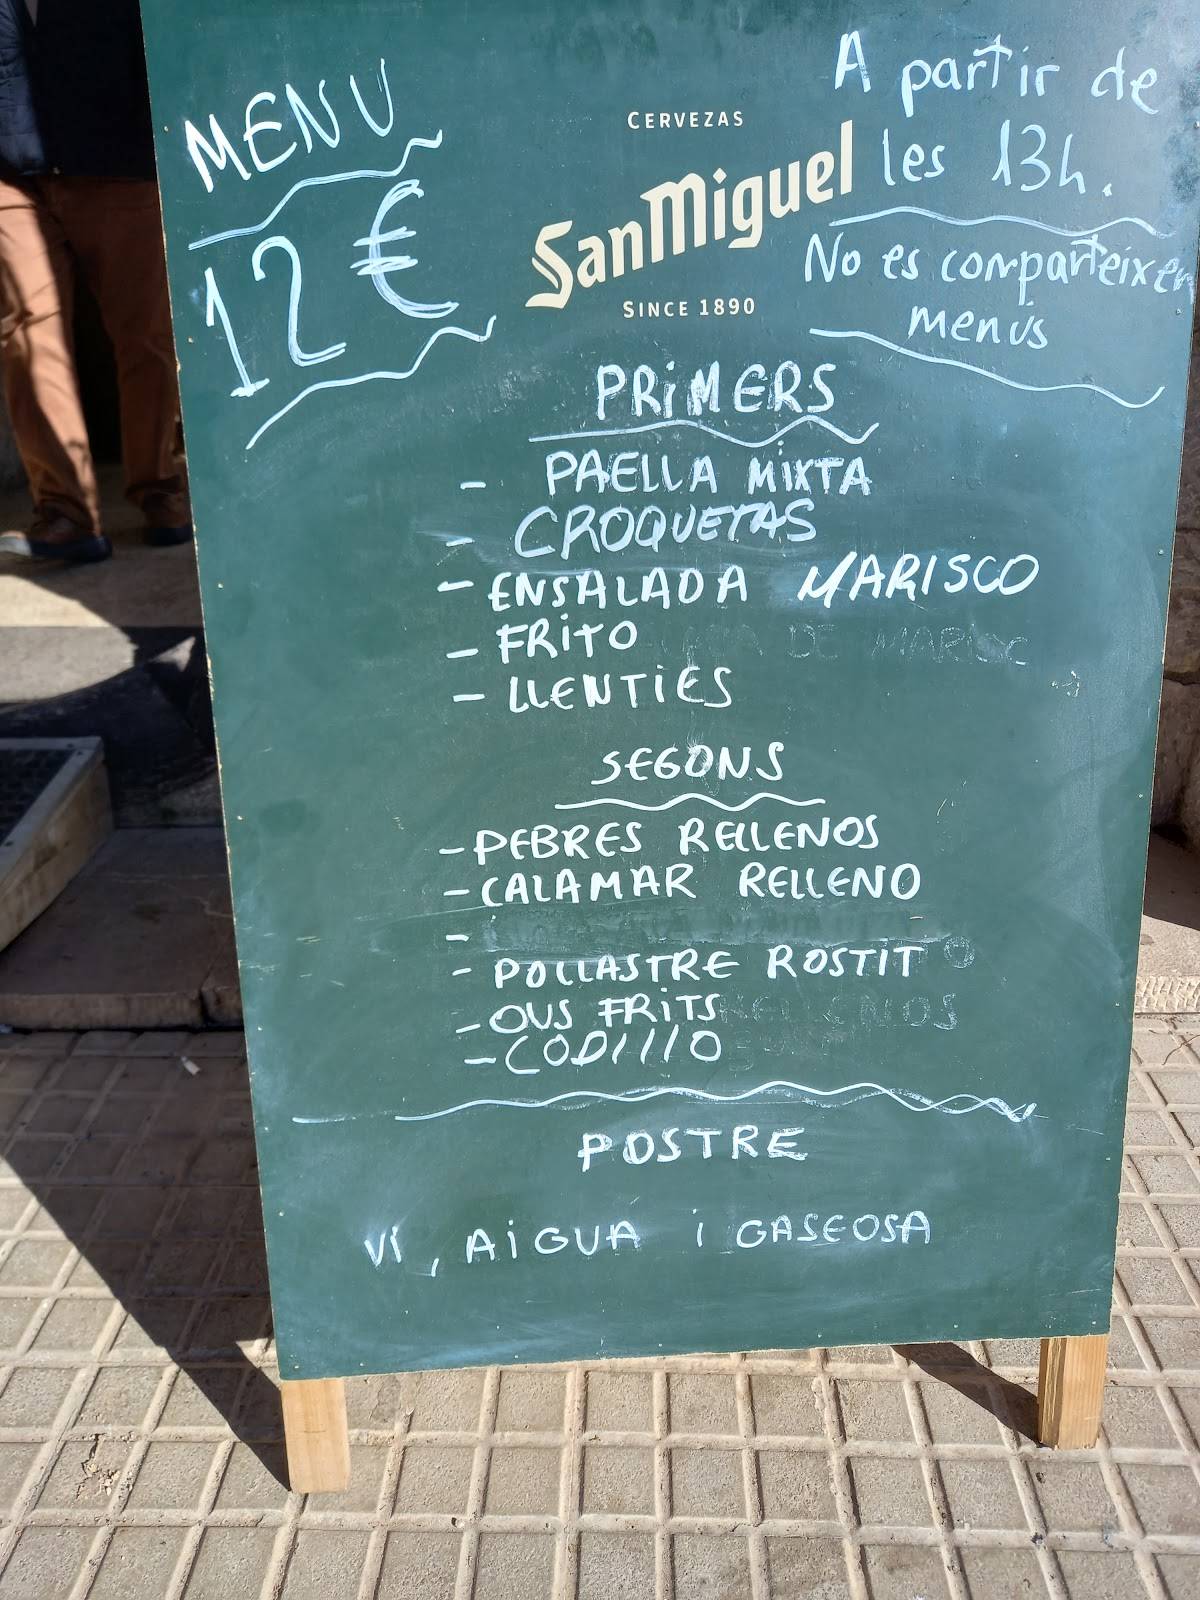 MENU
12€
CERVEZAS
SanMiguel
SINCE 1890
A partir de
les 13h.
No es comparteixen
menús
PRiMERS
- PAELLA MiXTA
- CROQUETAS
- ENSALADA MARISCO
- FRiTO
- LLENTiES
SEGONS
- PEBRES RELLENOS
- CALAMAR RELLENO
-
- POLLASTRE ROSTIT
- OUS FRiTS
- CODIllO
POSTRE
Vi, AiGUA i GASEOSA